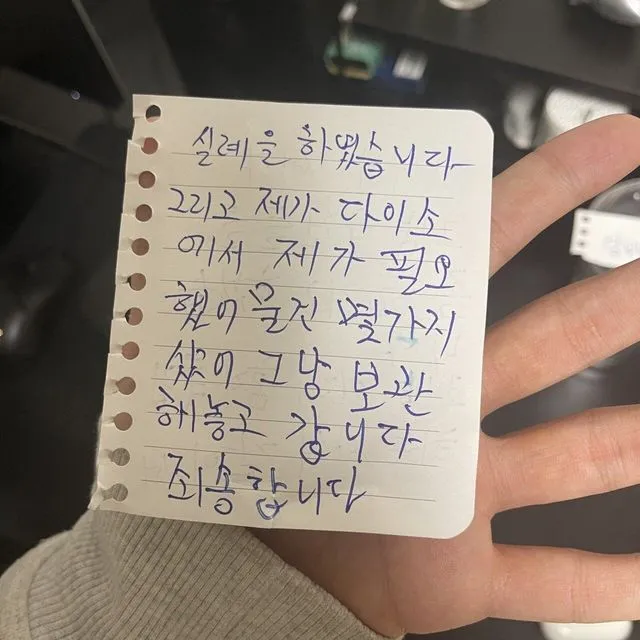 실례을 하였습니다
그리고 제가 다이소
에서 제가 필요
했어 물건 멫가지
샀어 그냥 보관
해놓고 갑니다
죄송합니다